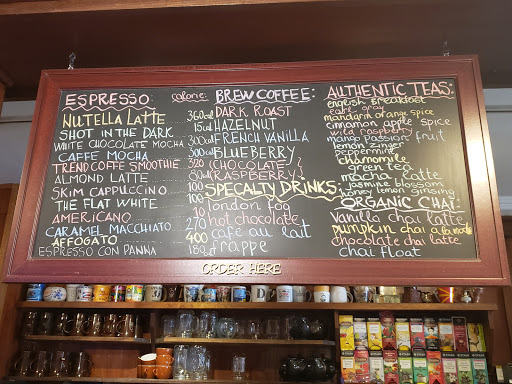 ESPRESSO: calorie:
NUTELLA LATTE 360cal
SHOT IN THE DARK 15cal
WHITE CHOCOLATE MOCHA 300cal
CAFFE MOCHA 300cal
TRENDCAFE SMOOTHIE 392
ALMOND LATTE 180
SKIM CAPPUCCINO 100
THE FLAT WHITE 100
AMERICANO 10
CARAMEL MACCHIATO 270
AFFOGATO 400
ESPRESSO CON PANNA 150cal
BREW COFFEE:
DARK ROAST
HAZELNUT
FRENCH VANILLA
BLUEBERRY
CHOCOLATE
RASPBERRY
SPECIALTY DRINKS:
london fog
hot chocolate
café au lait
frappe
AUTHENTIC TEAS:
english breakfast
earl gray
mandarin orange spice
cinnamon apple spice
wild raspberry
mango passion fruit
lemon zinger
peppermint
chamomile
green tea
macha latte
jasmine blossom
honey lemon ginseng
ORGANIC CHAI:
Vanilla chai latte
pumpkin chai a la mode
chocolate chai latte
chai float
ORDER HERE